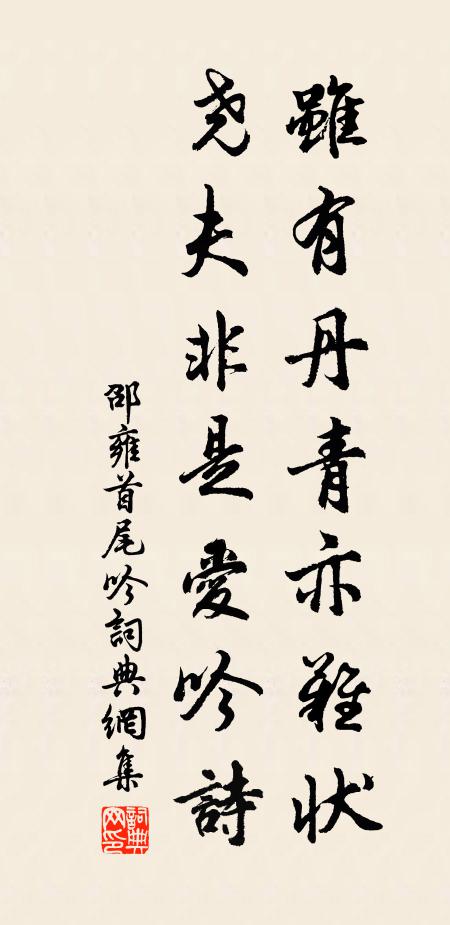 雖有丹青亦難狀
尧夫非是愛吟詩
邵雍首尾吟詞典網集
詞典網印